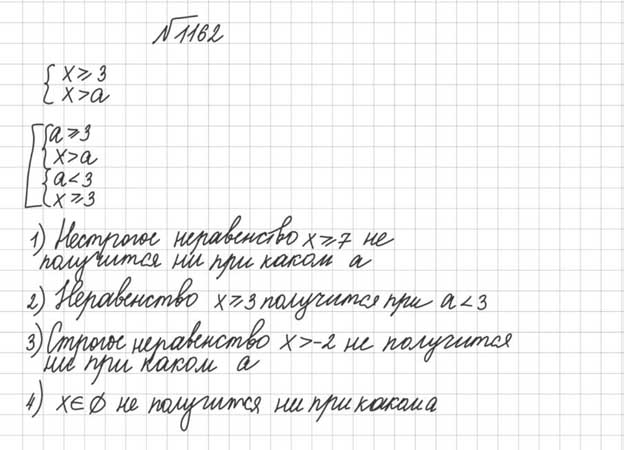 №1162
{ x ≥ 3
{ x > a
[ { a ≥ 3
{ x > a
{ a < 3
{ x ≥ 3
1) Нестрогое неравенство x ≥ 7 не
получится ни при каком a
2) Неравенство x ≥ 3 получится при a < 3
3) Строгое неравенство x > -2 не получится
ни при каком a
4) x ∈ ∅ не получится ни при каком a